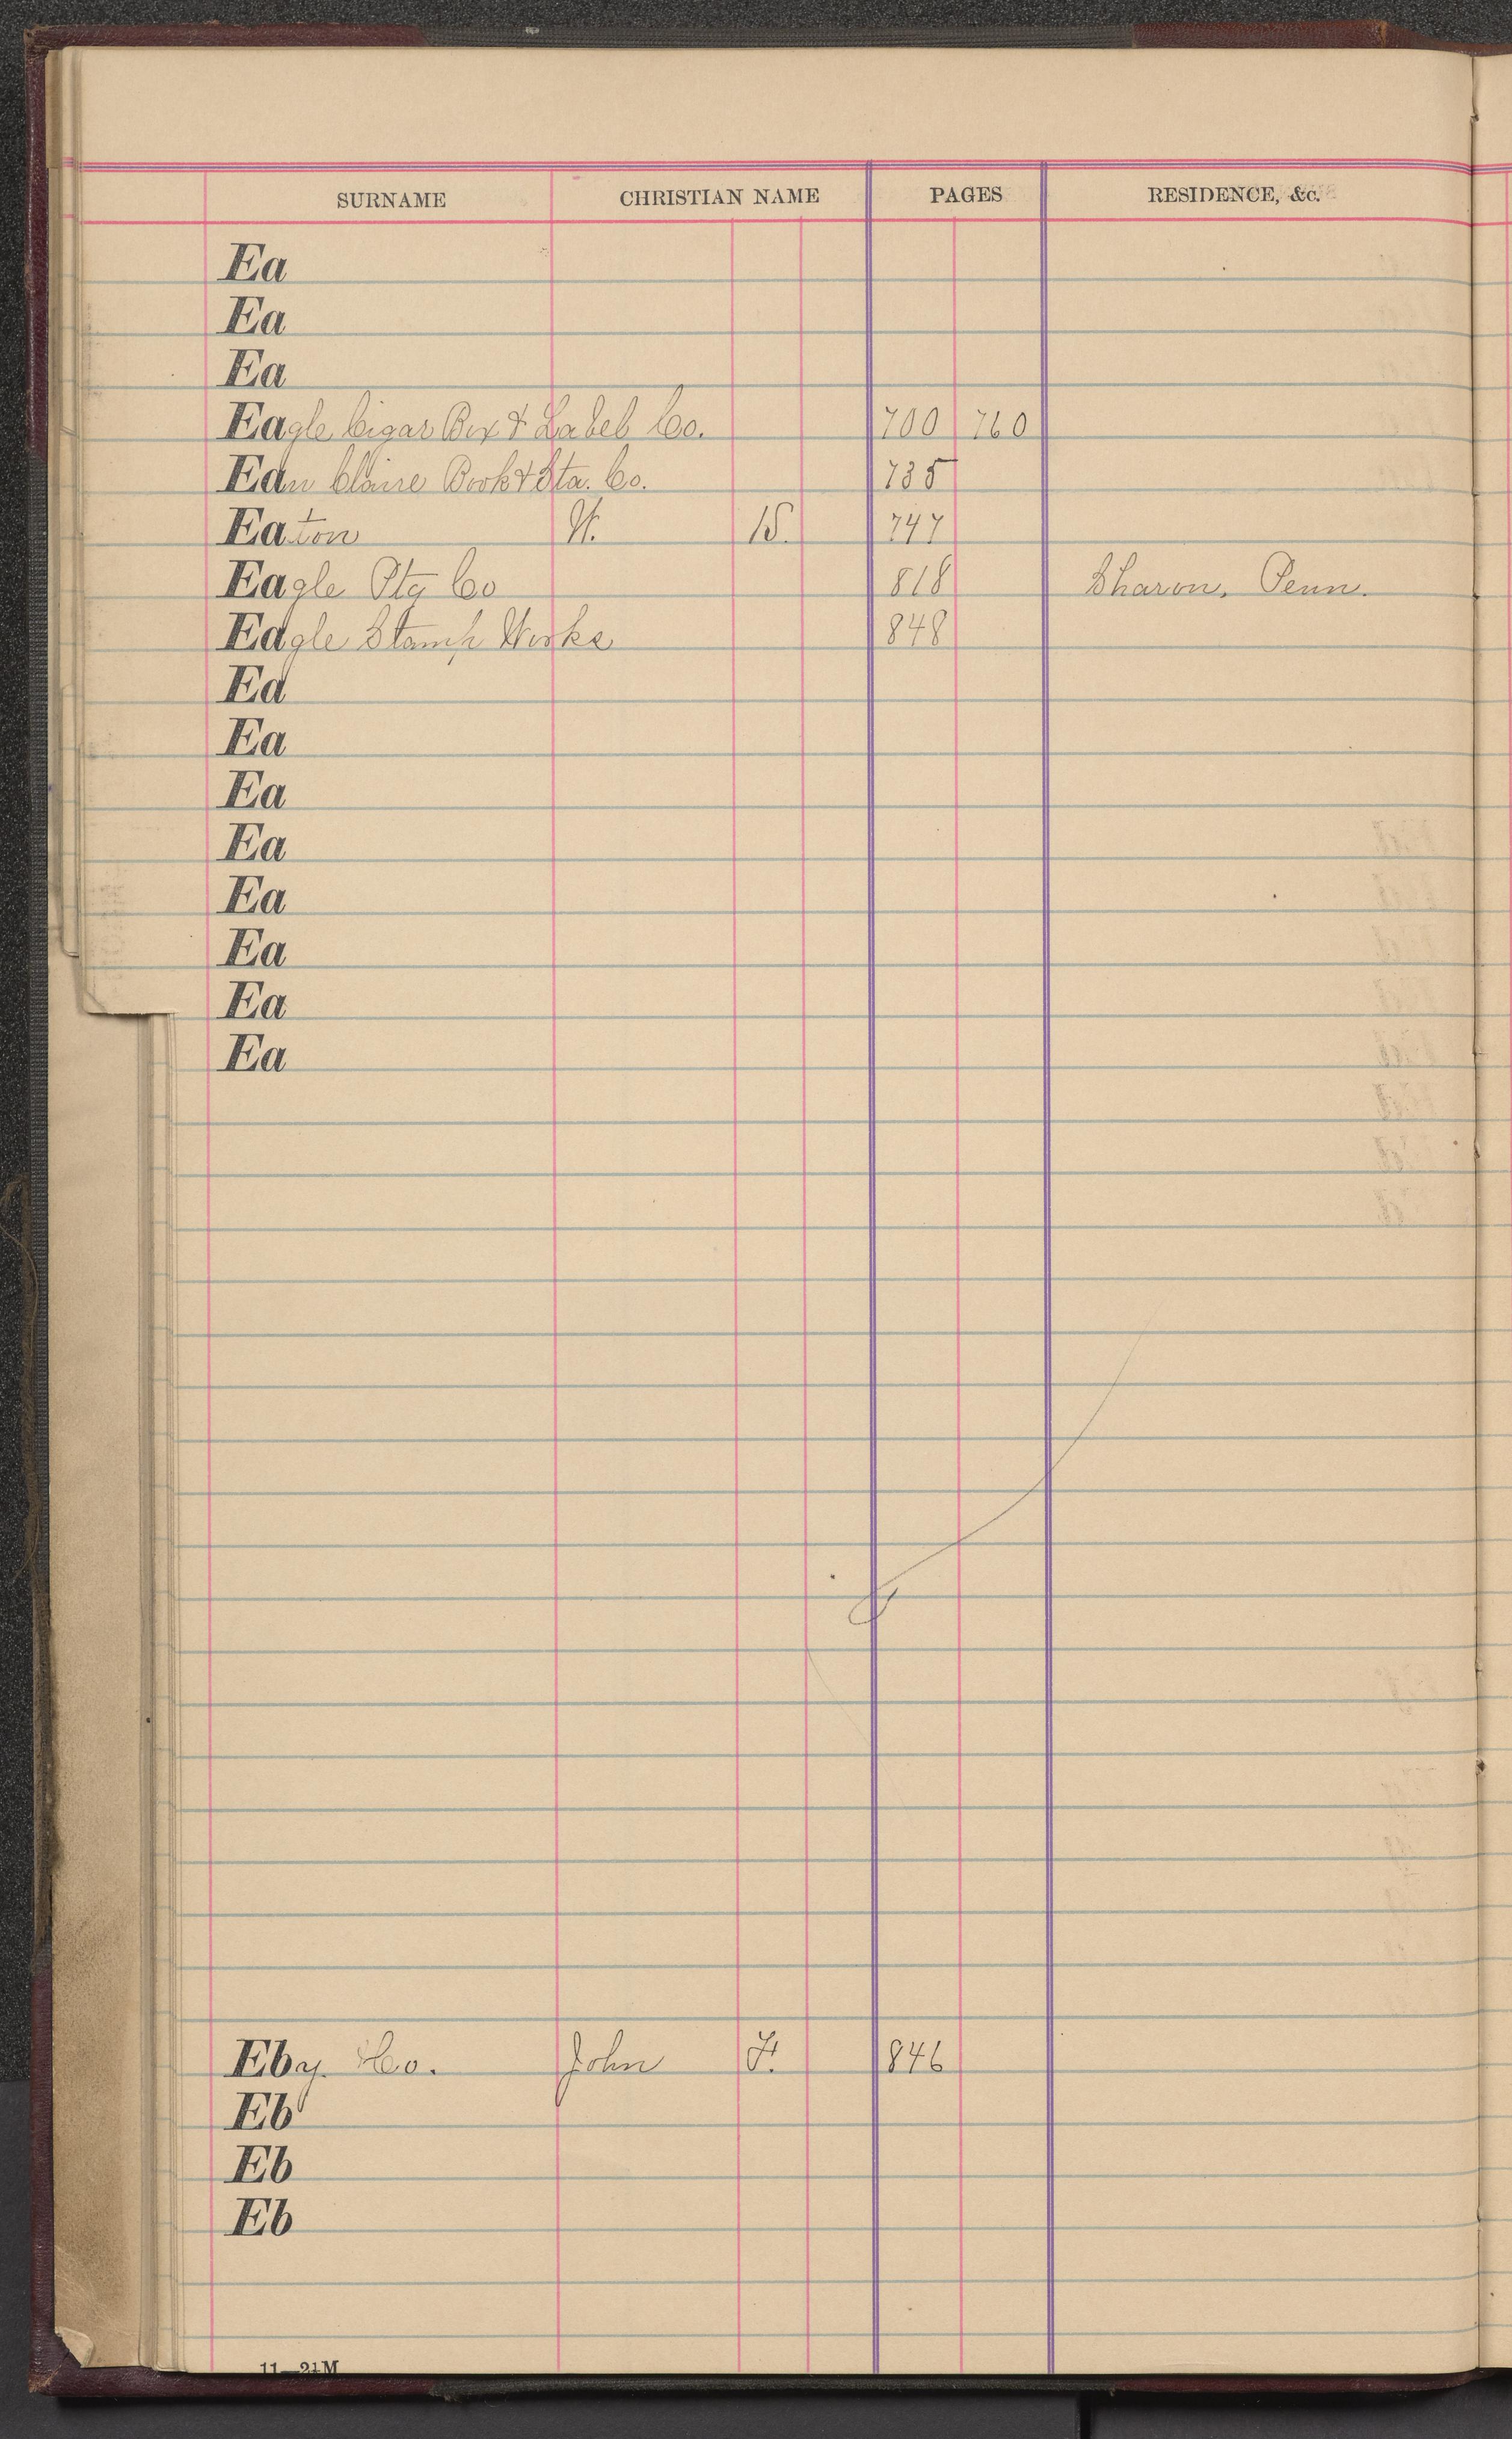 SURNAME CHRISTIAN NAME PAGES RESIDENCE, &c.
Ea
Ea
Ea
Eagle Cigar Box & Label Co. 700 760
Eau Claire Book & Sta. Co. 735
Eaton 747
Eagle Ptg Co 818 Sharon, Penn.
Eagle Stamp Works 848
Ea
Ea
Ea
Ea
Ea
Ea
Ea
Ea
Eby Co. John F. 846
Eb
Eb
Eb
11—2½M